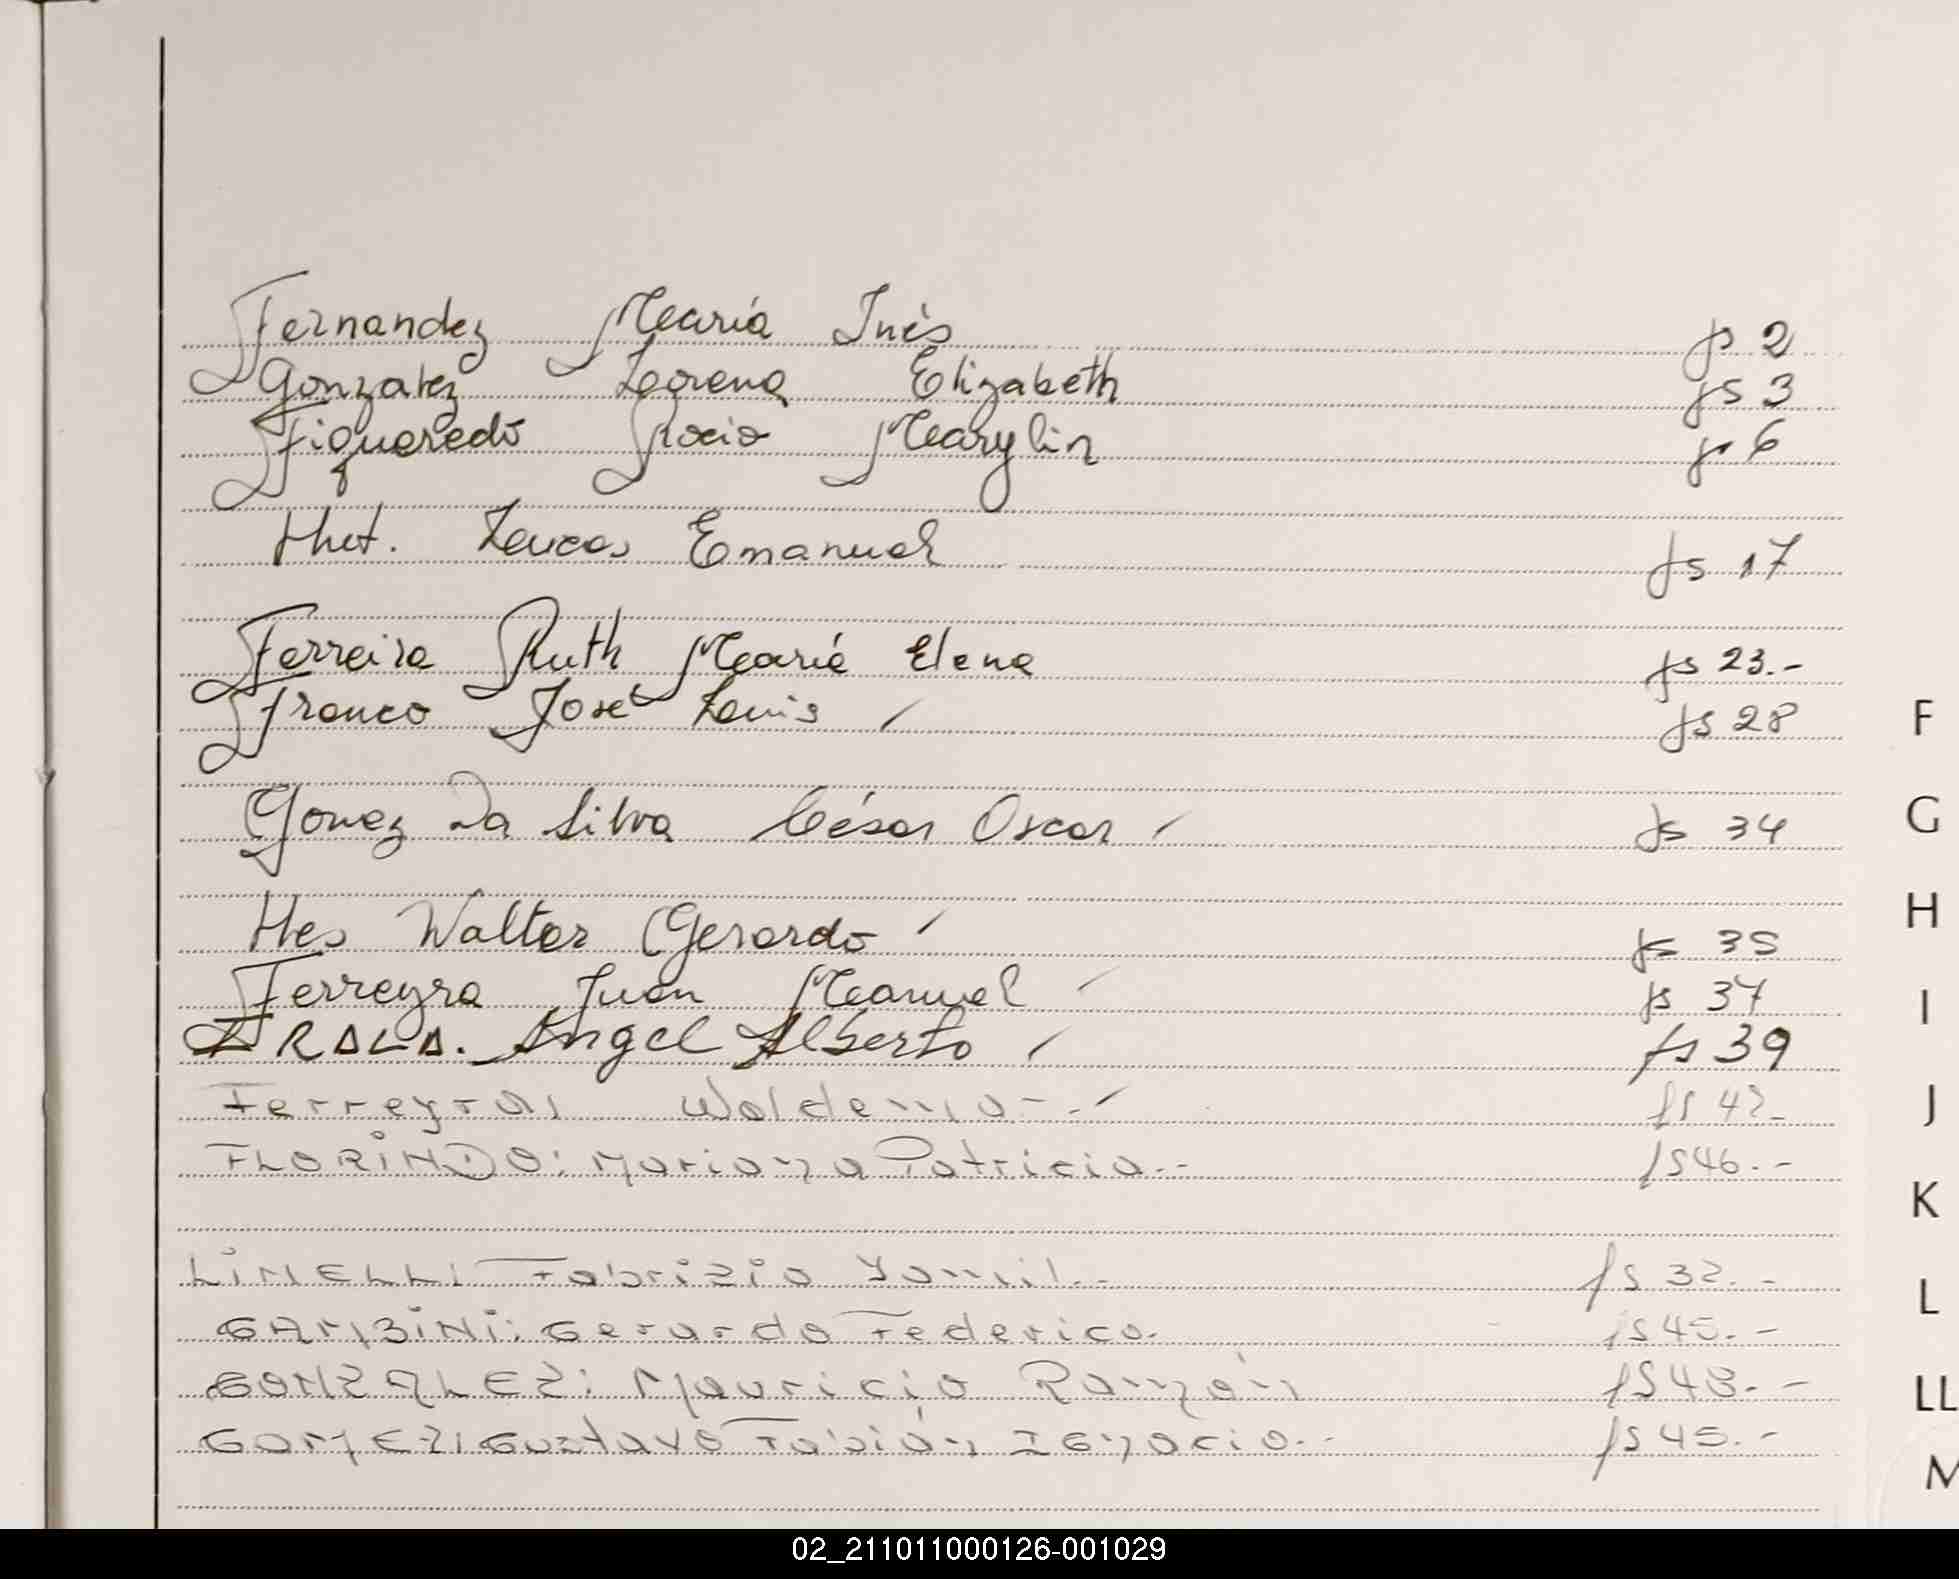 Fernandez María Inés fs 2
Gonzalez Lorena Elizabeth fs 3
Figueredo Rocio Marylin fs 6
Hut. Lucas Emanuel fs 17
Ferreira Ruth María Elena fs 23.-
Franco José Luis / fs 28
F
Gomez Da Silva César Oscar / fs 34
G
Hes Walter Gerardo / fs 35
H
Ferreyra Juan Manuel / fs 37
I
IRALA. Angel Alberto / fs 39
Ferreyra, Waldemar-. / fs 42-
J
FLORINDO: Mariana Patricia.- fs 46.-
K
LINELLI Fabrizio Yamil.- fs 32.-
L
GAMBINI: Gerardo Federico. fs 45.-
GONZALEZ: Mauricio Ramón fs 48.-
LL
GOMEZ: Gustavo Fabián Ignacio.- fs 45.-
M
02_211011000126-001029